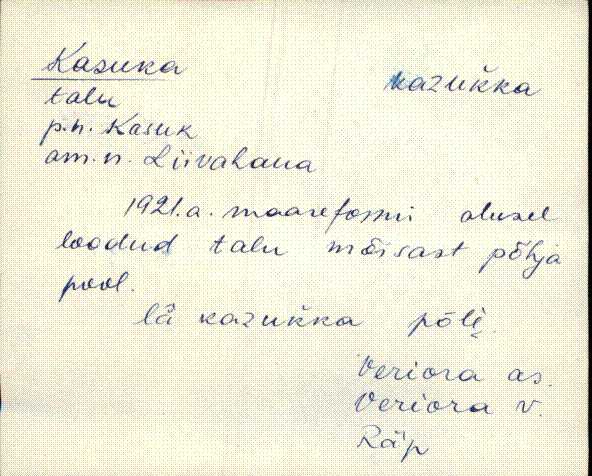 Kasuka kazuǩka
talu
p.n. Kasuk
am.n. Liivahaua
1921.a. maareformi alusel
loodud talu mõisast põhja
pool.
lä kazuǩka põlį
Veriora as.
Veriora v.
Räp